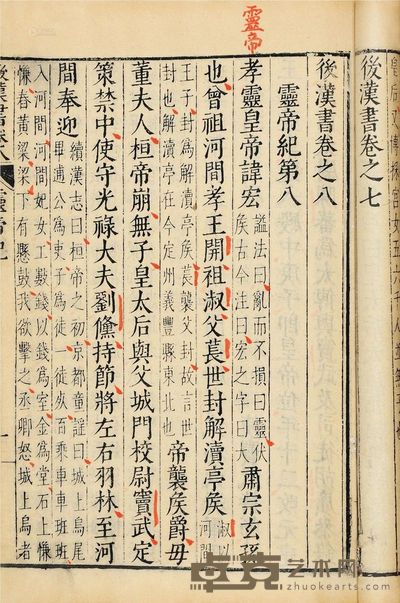 靈帝
後漢書卷之七
後漢書卷之八
靈帝紀第八
孝靈皇帝諱宏 謚法曰亂而不損曰靈伏
侯古今注曰宏之字曰大 肅宗玄孫
也曾祖河間孝王開祖淑父萇世封解瀆亭侯 淑以
河間
王子封為解瀆亭侯萇襲父封故言世
封也解瀆亭在今定州義豐縣東北也 帝襲侯爵母
董夫人桓帝崩無子皇太后與父城門校尉竇武定
策禁中使守光祿大夫劉儵持節將左右羽林至河
間奉迎 續漢志曰桓帝之初京都童謠曰城上烏尾
畢逋公為吏子為徒一徒死百乘車車班班
入河間河間妊女工數錢以錢為室金為堂石上慊
慊舂黃梁梁下有懸鼓我欲擊之丞卿怒城上烏者
後漢書卷八 靈帝紀 一
艺术网
www.zhuokearts.com